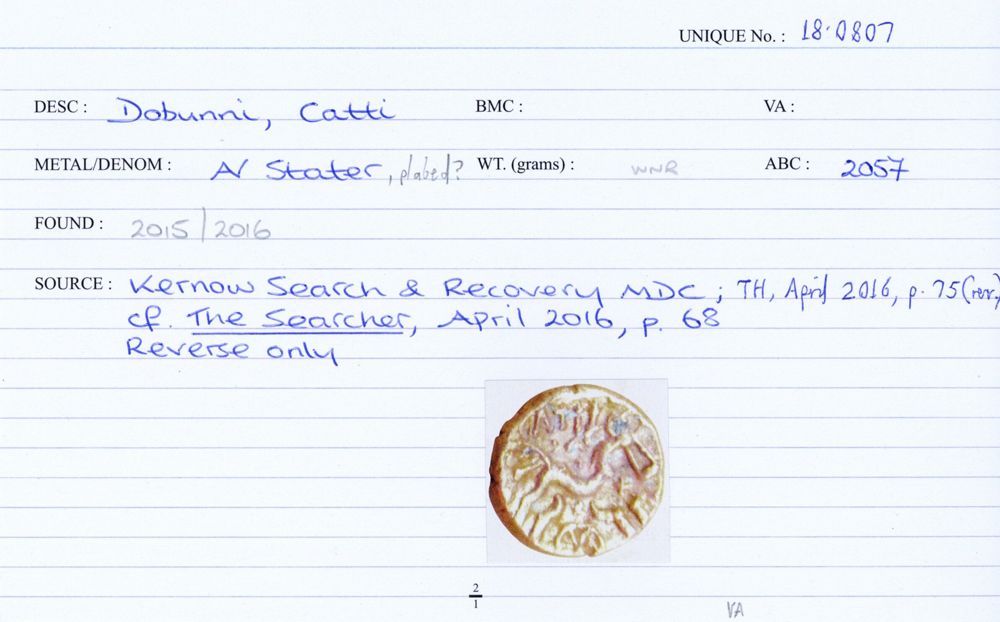 UNIQUE No. : 18·0807
DESC : Dobunni, Catti BMC : VA :
METAL/DENOM : AV Stater, plated? WT. (grams) : WNR ABC : 2057
FOUND : 2015/2016
SOURCE : Kernow Search & Recovery MDC ; TH, April 2016, p. 75 (rev)
cf. The Searcher, April 2016, p. 68
Reverse only
2
1
VA